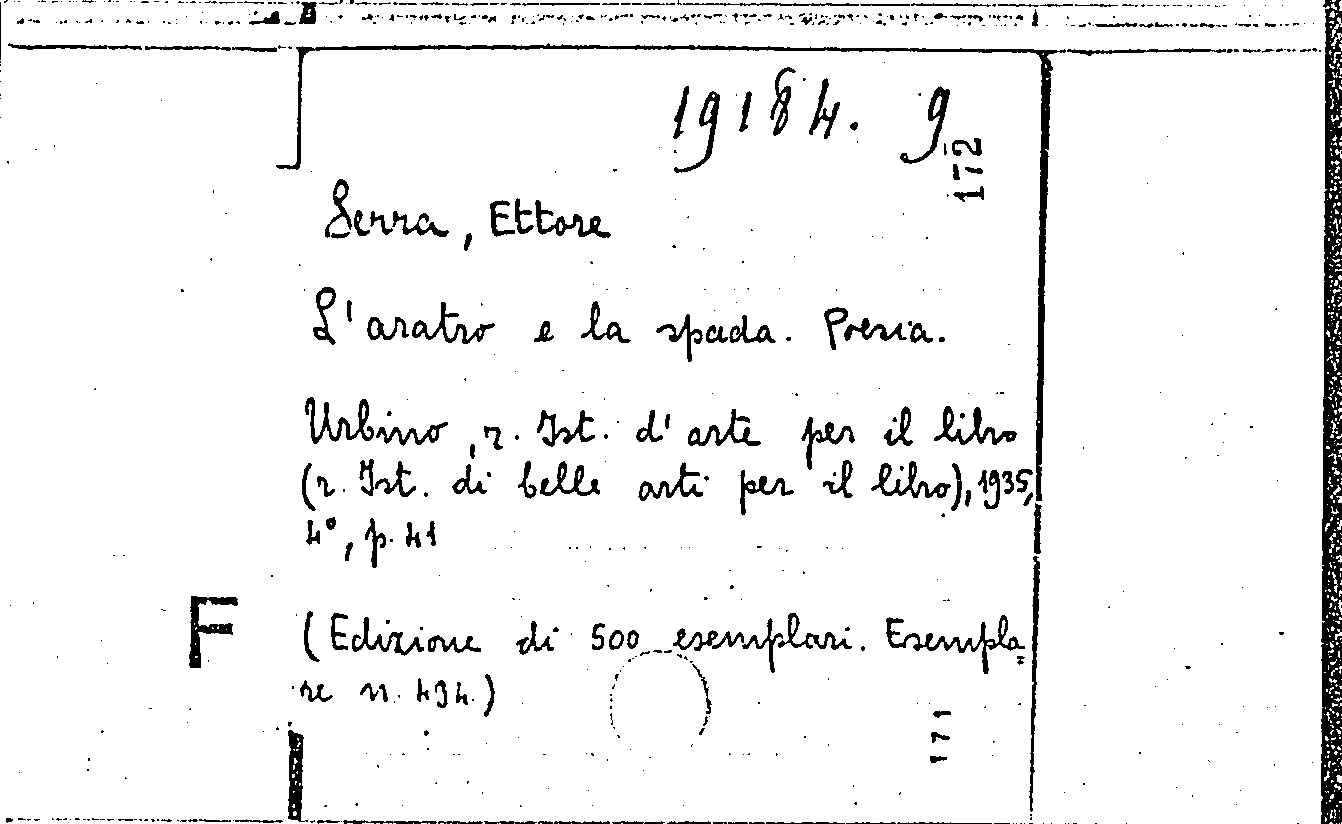 19184. 9
172
Serra, Ettore
L'aratro e la spada. Poesia.
Urbino, r. Ist. d'arte per il libro
(r. Ist. di belle arti per il libro), 1935,
4°, p. 41
F
(Edizione di 500 esemplari. Esempla=
re n. 494.)
171